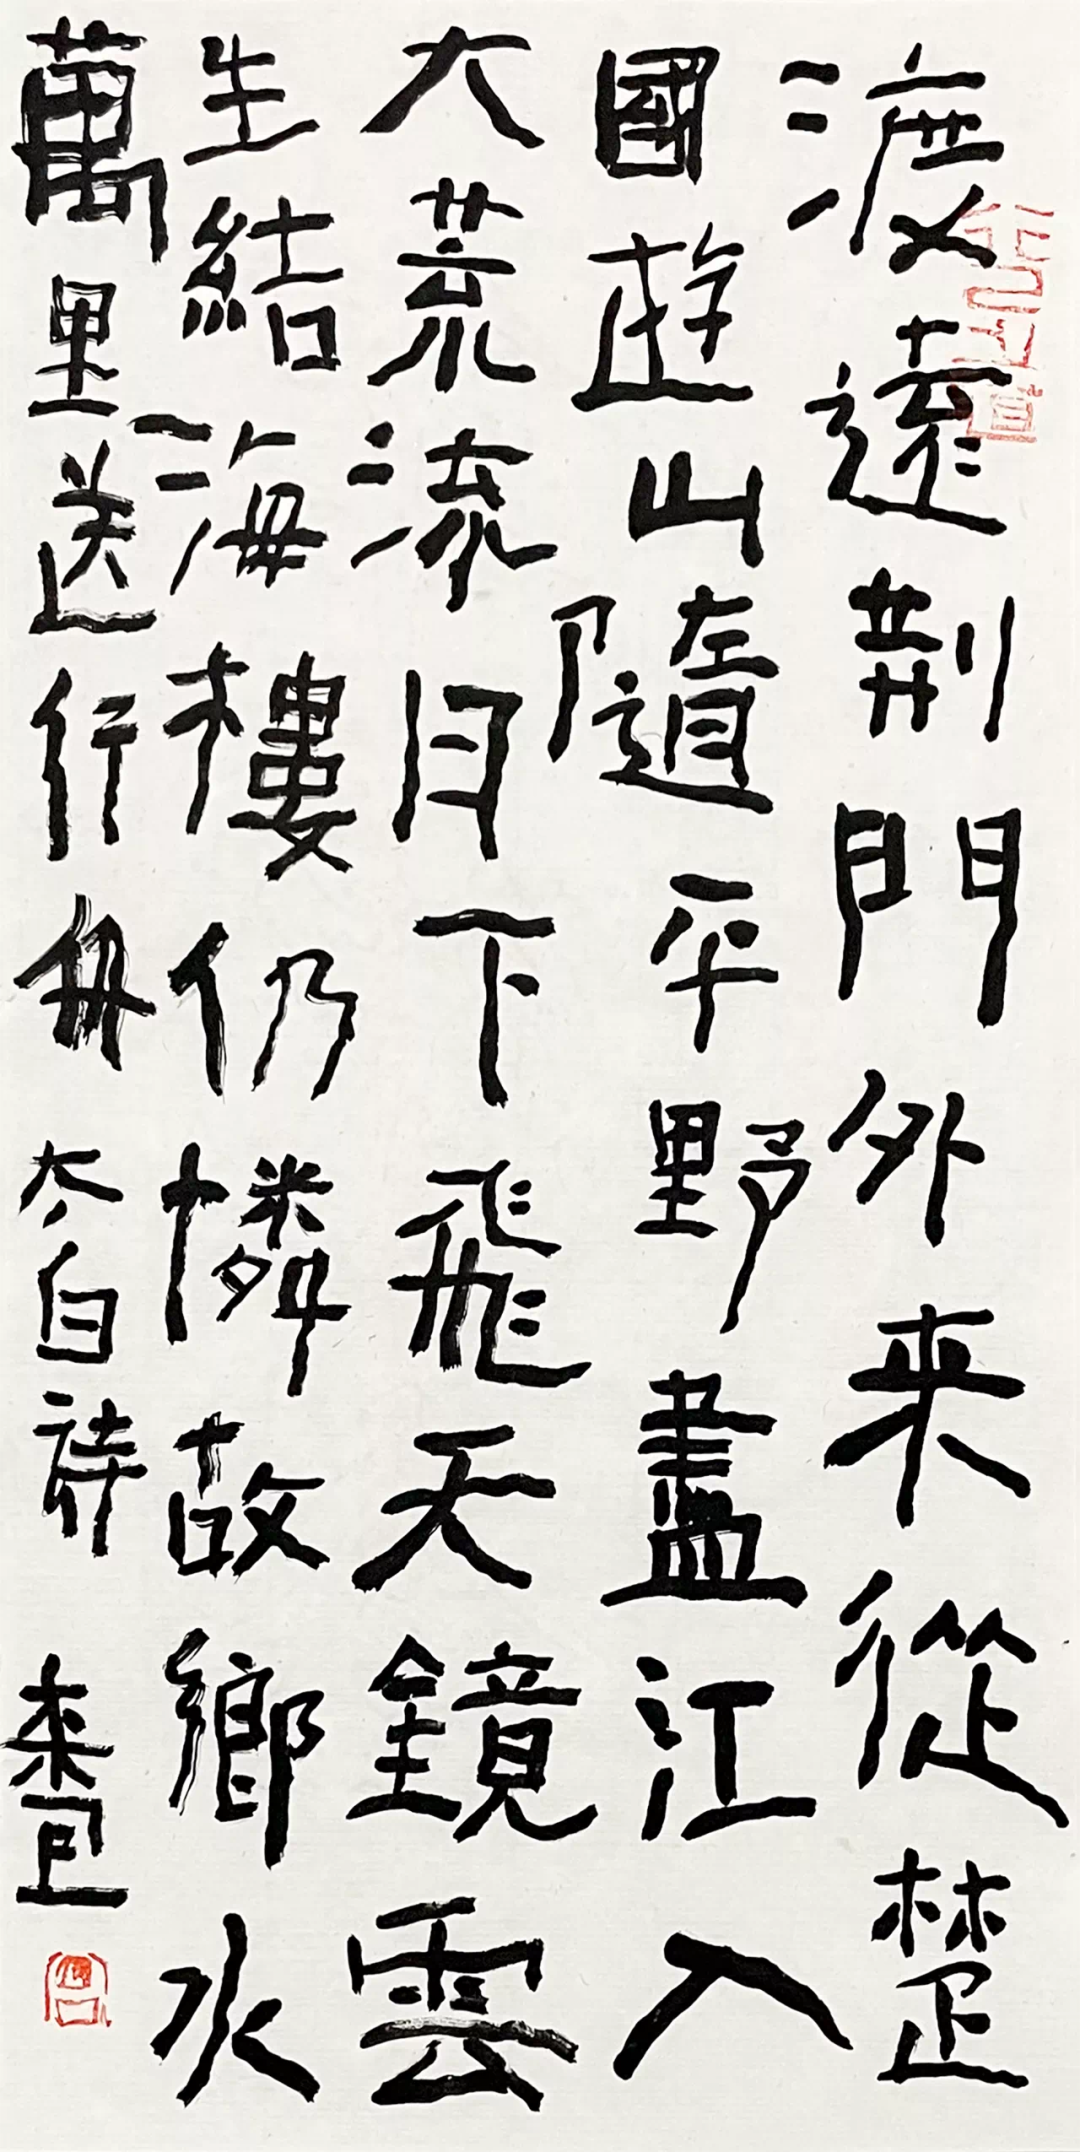 渡遠荆門外来從楚
國遊山隨平野盡江入
大荒流月下飛天鏡雲
生結海樓仍憐故鄉水
萬里送行舟太白詩